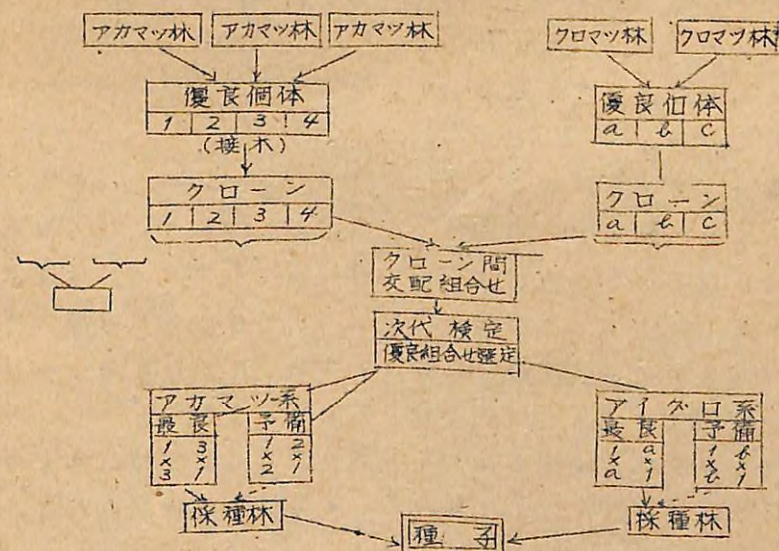 アカマツ林 アカマツ林 アカマツ林
クロマツ林 クロマツ林
優良個体
1 2 3 4
(接木)
優良個体
a b c
クローン
1 2 3 4
クローン
a b c
クローン間
交配組合せ
次代検定
優良組合せ選定
アカマツ系
最良 予備
1 3 1 2
× × × ×
3 1 2 1
アイグロ系
最良 予備
1 a 1 b
× × × ×
a 1 b 1
採種林
種子
採種林